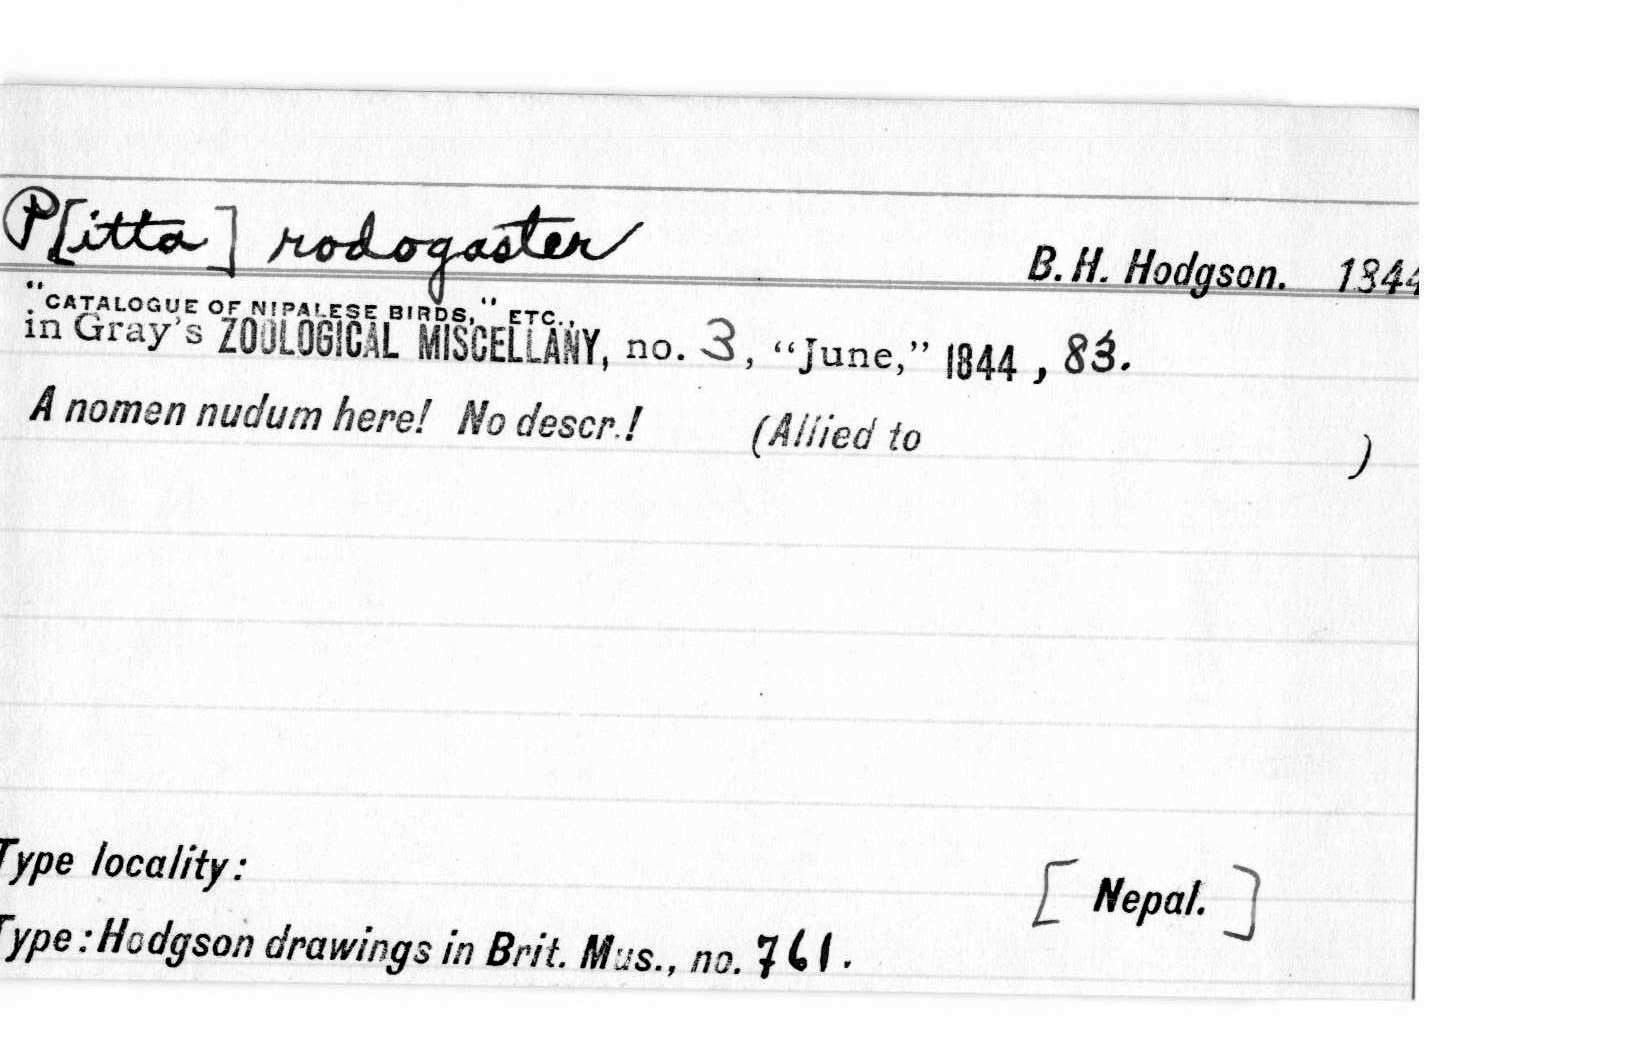 P[itta] rodogaster B. H. Hodgson. 1844
"CATALOGUE OF NIPALESE BIRDS," ETC.,
in Gray's ZOOLOGICAL MISCELLANY, no. 3, "June," 1844, 83.
A nomen nudum here! No descr.! (Allied to )
Type locality: [Nepal.]
Type: Hodgson drawings in Brit. Mus., no. 761.